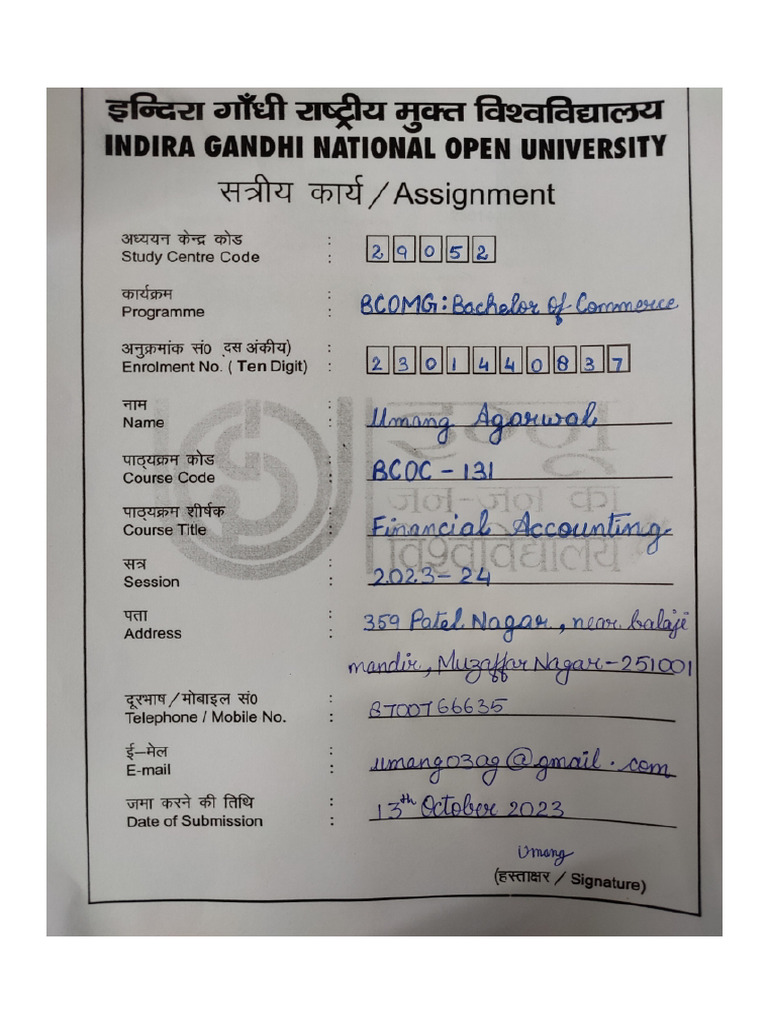 इन्दिरा गाँधी राष्ट्रीय मुक्त विश्वविद्यालय
INDIRA GANDHI NATIONAL OPEN UNIVERSITY
सत्रीय कार्य / Assignment
अध्ययन केन्द्र कोड :
Study Centre Code : 29052
कार्यक्रम :
Programme : BCOMG: Bachelor of Commerce
अनुक्रमांक सं0 दस अंकीय) :
Enrolment No. ( Ten Digit) : 2301440837
नाम :
Name : Umang Agarwal
पाठ्यक्रम कोड :
Course Code : BCOC - 131
पाठ्यक्रम शीर्षक :
Course Title : Financial Accounting
सत्र :
Session : 2023-24
पता :
Address : 359 Patel Nagar, near balaji
mandir, Muzaffar Nagar-251001
दूरभाष / मोबाइल सं0 :
Telephone / Mobile No. : 8700766635
ई-मेल :
E-mail : umang03ag@gmail.com
जमा करने की तिथि :
Date of Submission : 13th October 2023
Umang
(हस्ताक्षर / Signature)
इग्नू
जन-जन का
विश्वविद्यालय